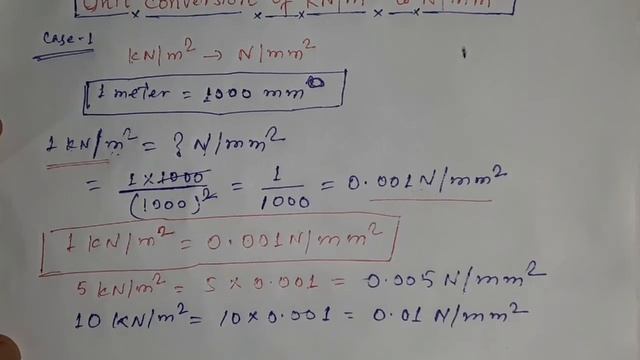 Unit Conversion of kN/m² to N/mm²
Case-1
kN/m² → N/mm²
1 meter = 1000 mm
1 kN/m² = ? N/mm²
= 1 × 1000 / (1000)² = 1/1000 = 0.001 N/mm²
1 kN/m² = 0.001 N/mm²
5 kN/m² = 5 × 0.001 = 0.005 N/mm²
10 kN/m² = 10 × 0.001 = 0.01 N/mm²